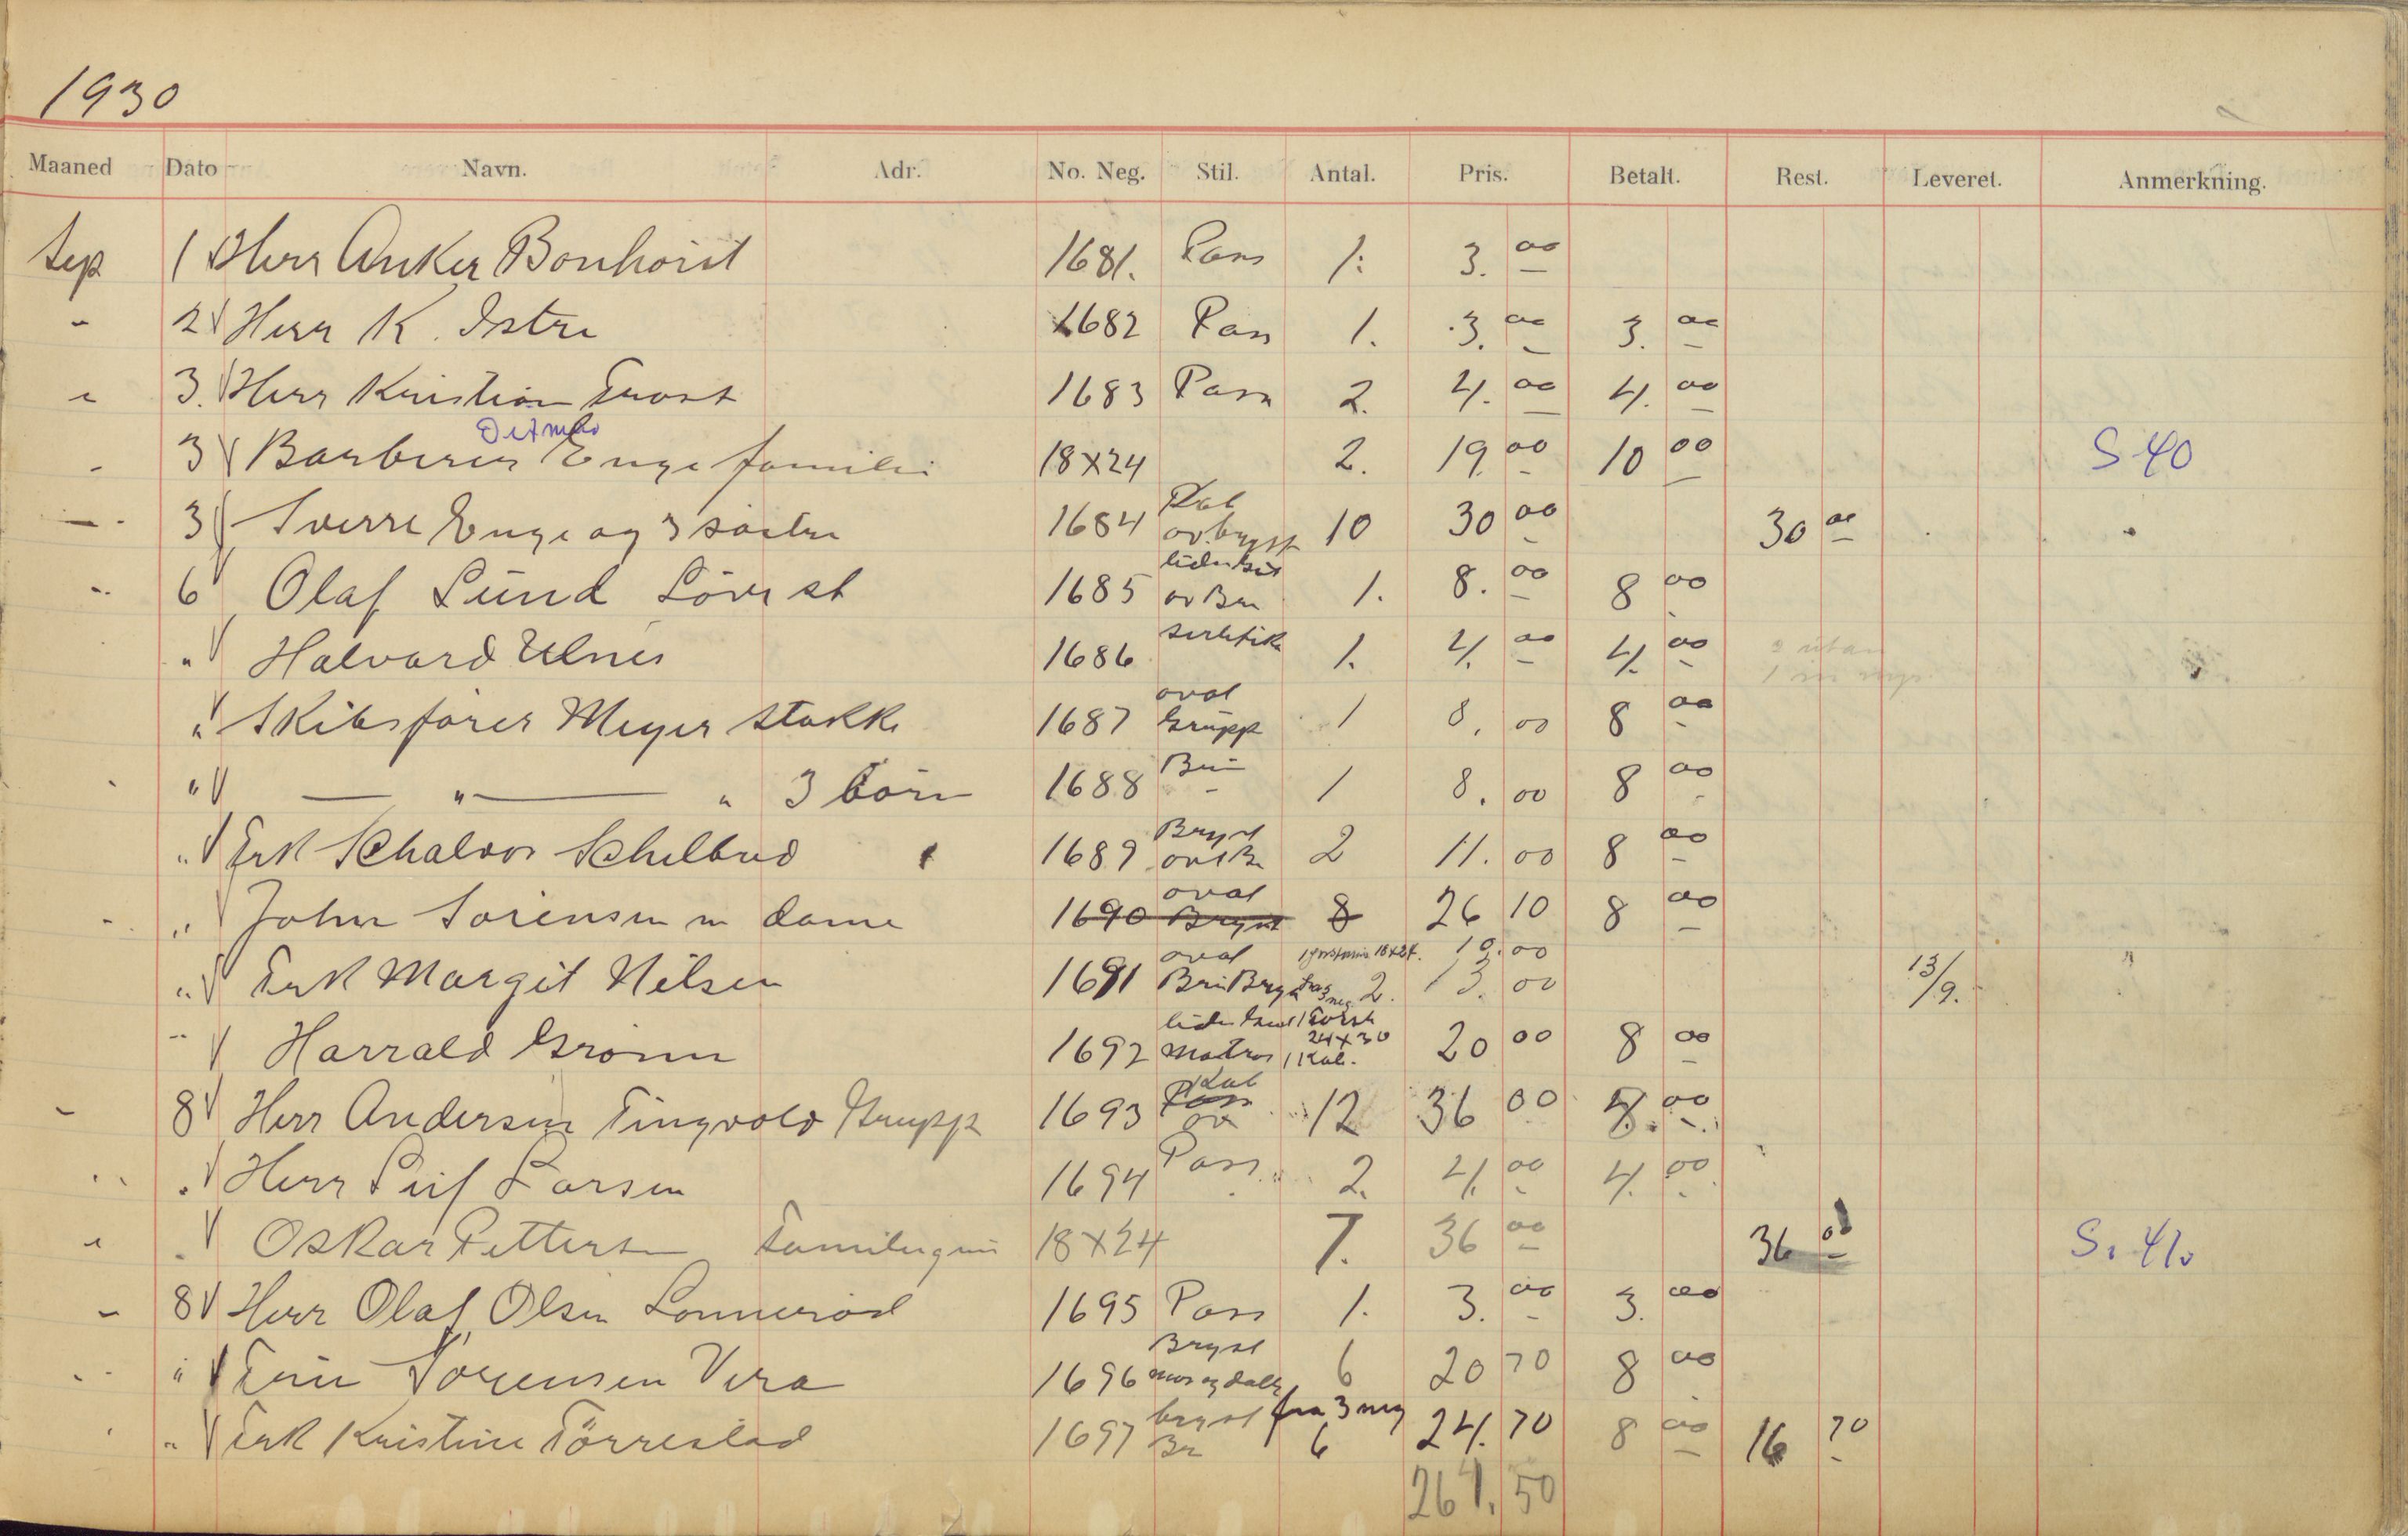 1930
Maaned Dato Navn. Adr. No. Neg. Stil. Antal. Pris. Betalt. Rest. Leveret. Anmerkning.
Sep 1 Herr Anker Bonhorst 1681. Pass 1. 3. 00
" 2 Herr K. Istre 1682 Pass 1. 3. 00 3. 00
" 3. Herr Kristian Frost 1683 Pass 2. 4. 00 4. 00
" 3 Barberer Enge familie 18x24 2. 19. 00 10 00 S 40
" 3 Sverre Enge og 3 söstre 1684 Kab ov. bryst 10 30 00 30 00
" 6 Olaf Lund 1685 ov Bru 1. 8. 00 8 00
" Halvard Ulnes 1686 1. 4. 00 4. 00
" Skibsförer Meyer Stokke 1687 oval Grupp 1 8. 00 8 00
" — " — " 3 börn 1688 1 8. 00 8 00
" Frk Schalvor 1689 Bryst 2 11. 00 8 00
" John Sörensen m dame 1690 oval Bryst 8 26 10 8 00
" Frk Margit Nilsen 1691 oval Bru Bryst fra 3 neg 2. 13. 00 13/9.
18x24. 10. 00
" Harrald Grönn 1692 Matros 24x30 1 Kab. 20 00 8 00
" 8 Herr Andersen Tingvold Grupp 1693 Kab Pass ov 12 36 00 8. 00
" Herr Leif Larsen 1694 Pass 2. 4. 00 4. 00
" Oskar Pettersen 18x24 7. 36 00 36 00 S. 41.
" 8 Herr Olaf Olsen Lonneröd 1695 Pass 1. 3. 00 3. 00
" Sörensen Vera 1696 Bryst 6 20 70 8 00
" Frk Kristine Törrestad 1697 bryst Br fra 3 neg 6 24. 70 8 00 16 70
261. 50